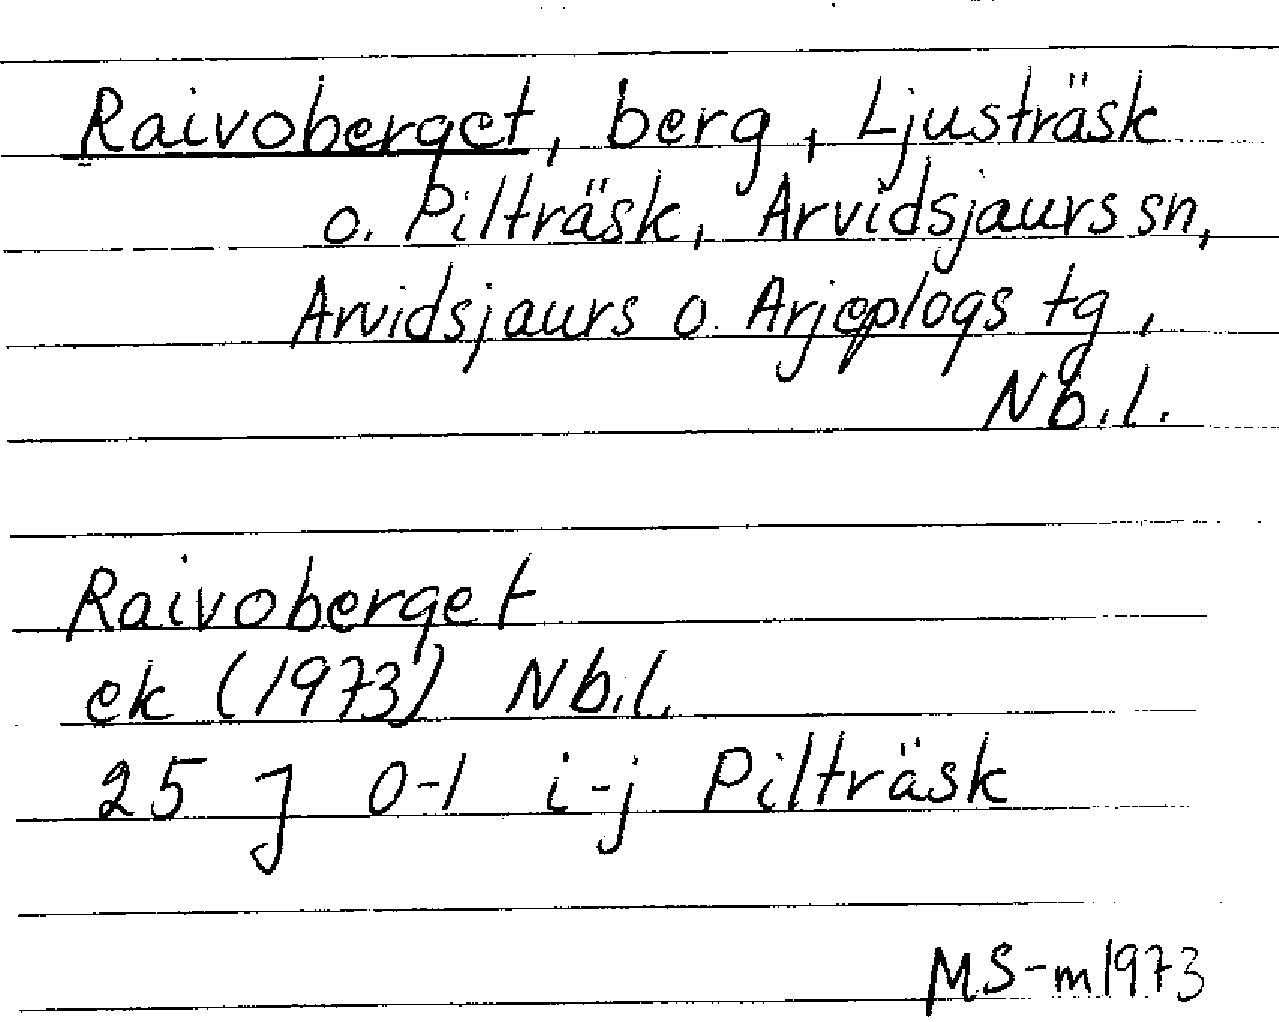 Raivoberget, berg, Ljusträsk
o. Pilträsk, Arvidsjaurs sn,
Arvidsjaurs o. Arjeplogs tg,
Nb.l.
Raivoberget
ek (1973) Nb.l.
25 J 0-1 i-j Pilträsk
MS-m1973